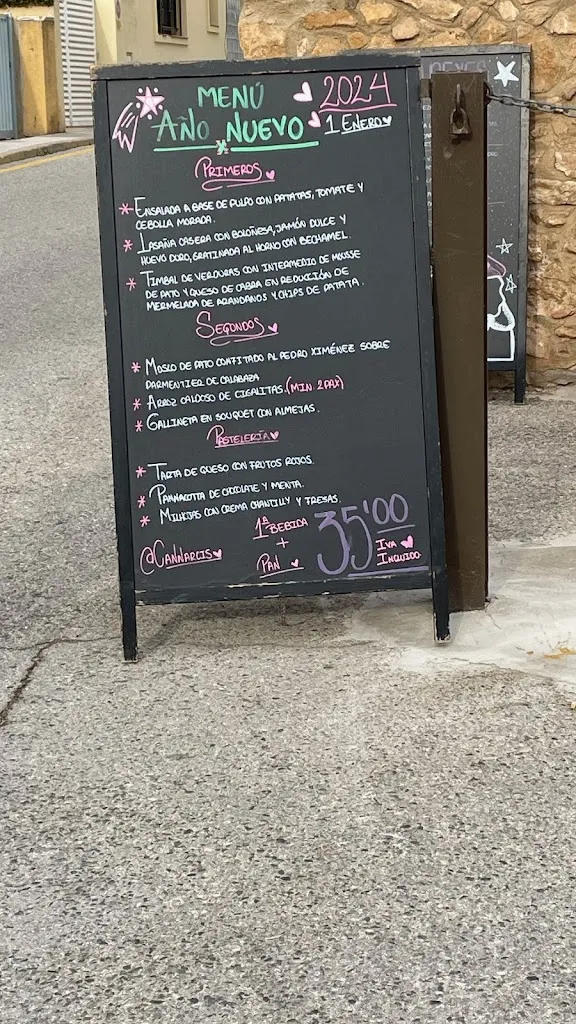 MENÚ
AÑO NUEVO
2024
1 ENERO
PRIMEROS
* ENSALADA A BASE DE PULPO CON PATATAS, TOMATE Y
CEBOLLA MORADA.
* LASAÑA CASERA CON BOLOÑESA, JAMÓN DULCE Y
HUEVO DURO, GRATINADA AL HORNO CON BECHAMEL.
* TIMBAL DE VERDURAS CON INTERMEDIO DE MOUSSE
DE PATO Y QUESO DE CABRA EN REDUCCIÓN DE
MERMELADA DE ARANDANOS Y CHIPS DE PATATA.
SEGONDOS
* MOSLO DE PATO CONFITADO AL PEDRO XIMÉNEZ SOBRE
PARMENTIER DE CALABAZA
* ARROZ CALDOSO DE CIGALITAS. (MIN. 2 PAX)
* GALLINETA EN SOUQUET CON ALMEJAS.
PASTELERÍA
* TARTA DE QUESO CON FRUTOS ROJOS.
* PANNACOTTA DE CHOCOLATE Y MENTA.
* MILHIJAS CON CREMA CHANTILLY Y FRESAS.
@CANNARCIS
1ª BEBIDA
+
PAN
35'00
IVA
INCLUIDO